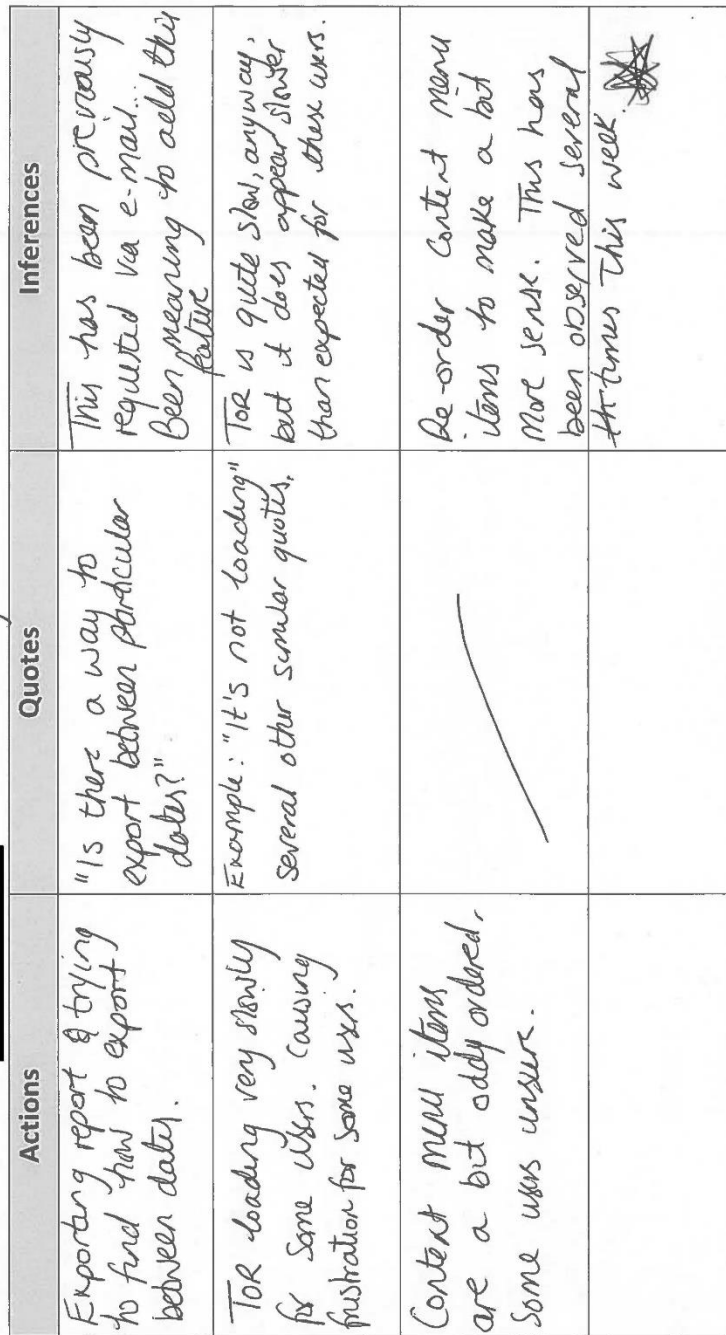 Actions
Quotes
Inferences
Exporting report & trying
to find how to export
between dates.
"Is there a way to
export between particular
dates?"
This has been previously
requested via e-mail...
Been meaning to add this
feature
TOR loading very slowly
for some users. Causing
frustration for some users.
Example: "It's not loading"
several other similar quotes.
TOR is quite slow, anyway,
but it does appear slower
than expected for these users.
Content menu items
are a bit oddly ordered.
Some users unsure.
Re-order content menu
items to make a bit
more sense. This has
been observed several
times this week.